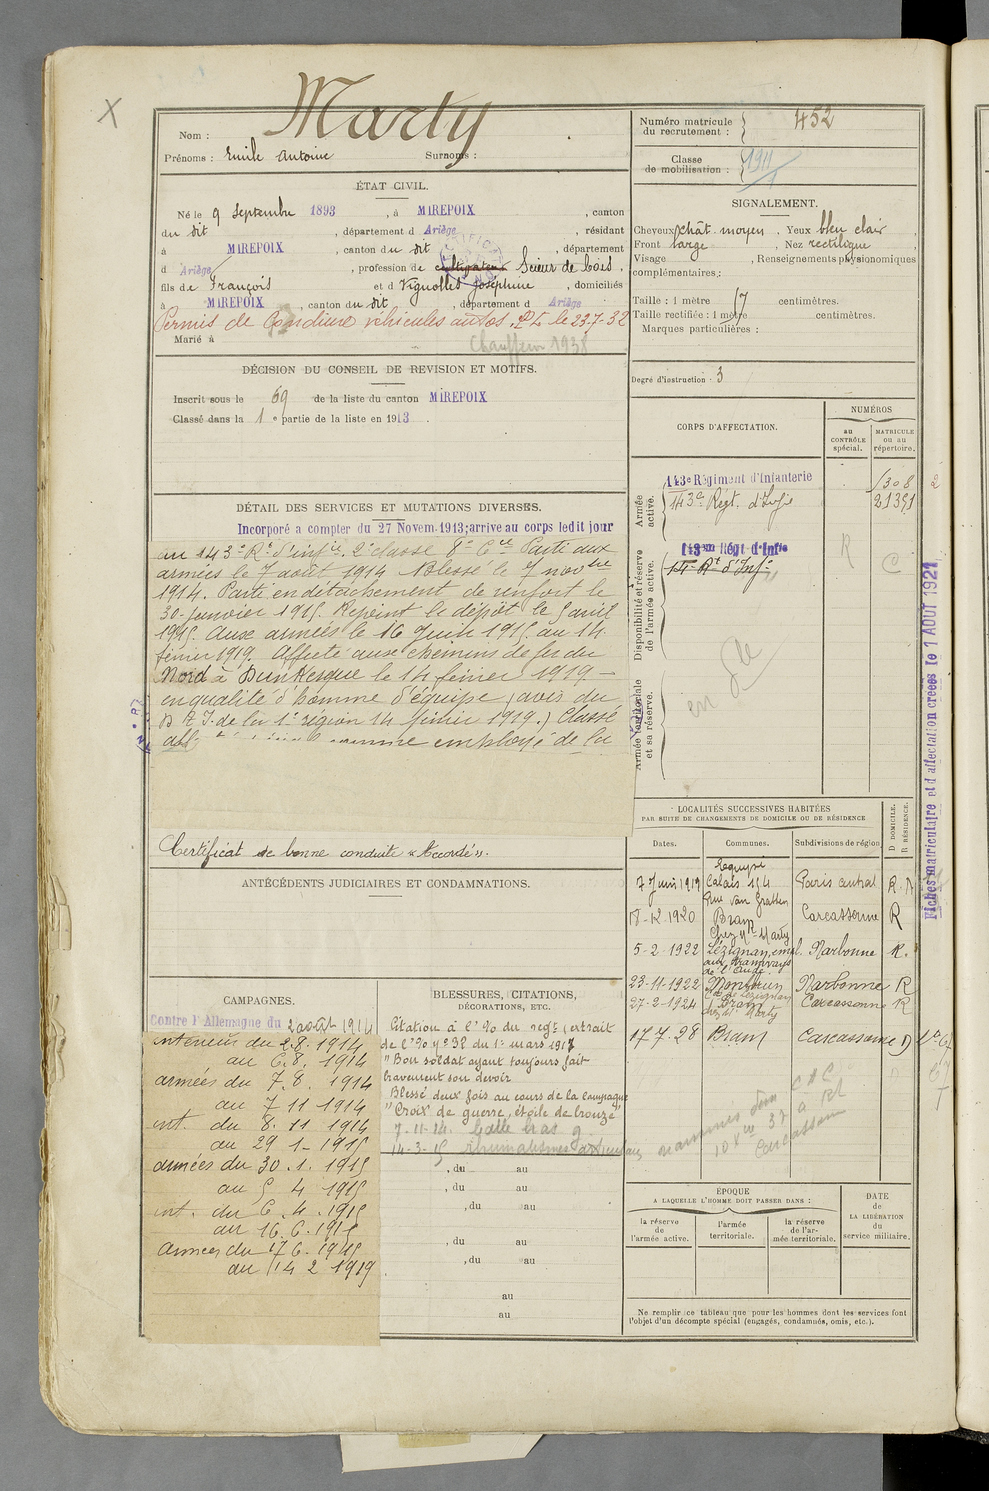 X
Marty
Nom :
Prénoms : Emile Antoine Surnoms :
Numéro matricule du recrutement : 452
Classe de mobilisation : 1911
ÉTAT CIVIL.
Né le 9 Septembre 1893, à MIREPOIX, canton
du dit, département d Ariège, résidant
à MIREPOIX, canton du dit, département
d Ariège, profession de cultivateur Scieur de bois,
fils de François et d Vignolles Joséphine, domiciliés
à MIREPOIX, canton du dit, département d Ariège
Permis de Conduire véhicules autos le 23.7-32
Marié à
Chauffeur 1938
SIGNALEMENT.
Cheveux chât. moyen, Yeux bleu clair,
Front large, Nez rectiligne,
Visage , Renseignements physionomiques
complémentaires :
Taille : 1 mètre 67 centimètres.
Taille rectifiée : 1 mètre centimètres.
Marques particulières :
Degré d'instruction : 3
DÉCISION DU CONSEIL DE REVISION ET MOTIFS.
Inscrit sous le 69 de la liste du canton MIREPOIX
Classé dans la 1e partie de la liste en 1913.
DÉTAIL DES SERVICES ET MUTATIONS DIVERSES.
Incorporé a compter du 27 Novem. 1913; arrive au corps ledit jour
au 143e Rt d'infie. 2e classe 8e Cie Parti aux
armées le 7 août 1914 Blessé le 7 novbre
1914. Parti en détachement de renfort le
30 janvier 1915. Rejoint le dépôt le 5 avril
1915. Aux armées le 16 Juin 1915 au 14
février 1919. Affecté aux chemins de fer du
Nord à Dunkerque le 14 février 1919 -
en qualité d'homme d'équipe (avis du
de la 1e région 14 février 1919.) Classé
comme employé de la
Certificat de bonne conduite « Accordé ».
CORPS D'AFFECTATION.
NUMÉROS
au CONTRÔLE spécial.
MATRICULE ou au répertoire.
Armée active.
143e Régiment d'Infanterie
1308
143e Regt. d'Infie
21351
Disponibilité et réserve de l'armée active.
143me Régt d'Infie
R
C
Armée territoriale et sa réserve.
en
Fiches matriculaire et d'affectation créées le 1 AOUT 1921
ANTÉCÉDENTS JUDICIAIRES ET CONDAMNATIONS.
LOCALITÉS SUCCESSIVES HABITÉES
PAR SUITE DE CHANGEMENTS DE DOMICILE OU DE RÉSIDENCE
Dates.
Communes.
Subdivisions de région
D DOMICILE. R RÉSIDENCE.
7 Juin 1919 Calais 194 Paris central R.
Rue Van Gratten
18-12-1920 Bram Carcassonne R
Chez Mr Marty
5-2-1922 Lézignan, empl. Narbonne R.
aux tramways
de l'Aude.
23-11-1922 Narbonne R
27-2-1924 Bram Carcassonne R
chez Mr Marty
17 7. 28 Bram Carcassonne D
CAMPAGNES.
Contre l'Allemagne du 2 août 1914
intérieur du 2.8.1914
au 6.8.1914
armées du 7.8.1914
au 7 11 1914
int. du 8.11 1914
au 29 1-1915
armées du 30.1.1915
au 5 4 1915
int. du 6.4.1915
au 16.6.1915
armées du 17 6.1915
au 14 2 1919
BLESSURES, CITATIONS,
DÉCORATIONS, ETC.
Citation à l'O. du regt (extrait
de l'O. No 32 du 1er mars 1917
"Bon soldat ayant toujours fait
bravement son devoir
Blessé deux fois au cours de la campagne
"Croix de guerre, étoile de bronze"
7-11-14. balle bras g.
14-3-15 rhumatismes articulaires
, du au
, du au
, du au
, du au
, du au
au
au
ÉPOQUE
A LAQUELLE L'HOMME DOIT PASSER DANS :
la réserve de l'armée active.
l'armée territoriale.
la réserve de l'armée territoriale.
DATE DE LA LIBÉRATION du service militaire.
Ne remplir ce tableau que pour les hommes dont les services font
l'objet d'un décompte spécial (engagés, condamnés, omis, etc.).